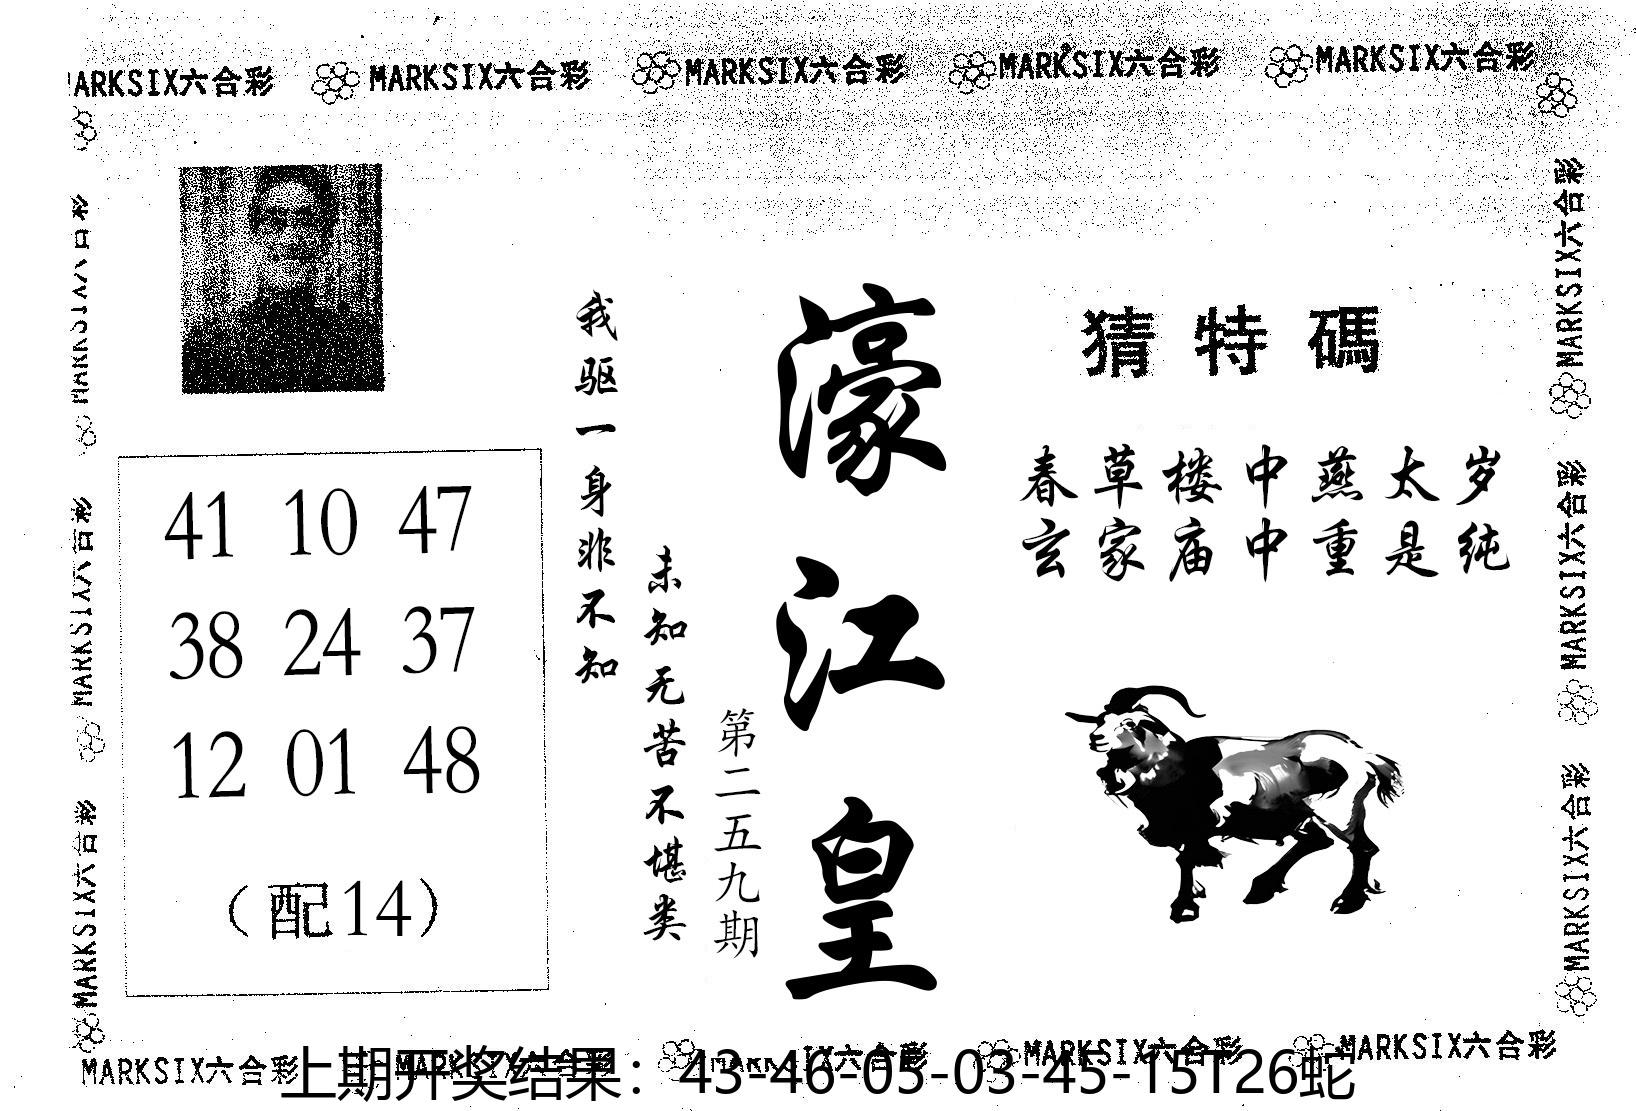 MARKSIX六合彩 MARKSIX六合彩 MARKSIX六合彩 MARKSIX六合彩 MARKSIX六合彩
MARKSIX六合彩
MARKSIX六合彩
MARKSIX六合彩
41 10 47
38 24 37
12 01 48
（配14）
我驱一身非不知
未知无苦不堪类
第二五九期
濠江皇
猜特碼
春草楼中燕太岁
玄家庙中重是纯
MARKSIX六合彩
MARKSIX六合彩
MARKSIX六合彩
MARKSIX六合彩 MARKSIX六合彩 MARKSIX六合彩 MARKSIX六合彩 MARKSIX六合彩
上期开奖结果：43-46-05-03-45-15T26蛇